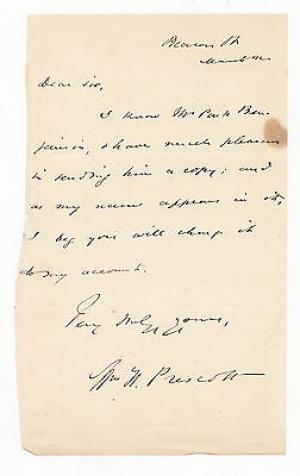 Beacon St.
March 12.
dear sir,
I know Mr Park Ben-
jamin, & have much pleasure
in sending him a copy; and
as my name appears in it,
I beg you will charge it
to my account.
Very truly yours,
Wm H. Prescott